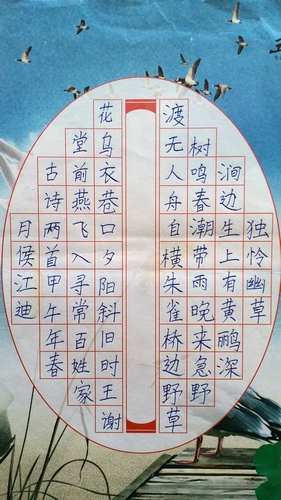 独怜幽草
涧边生上有黄鹂深
树鸣春潮带雨晚来急野
渡无人舟自横朱雀桥边野草
花乌衣巷口夕阳斜旧时王谢
堂前燕飞入寻常百姓家
古诗两首甲午年春
月侯江迪